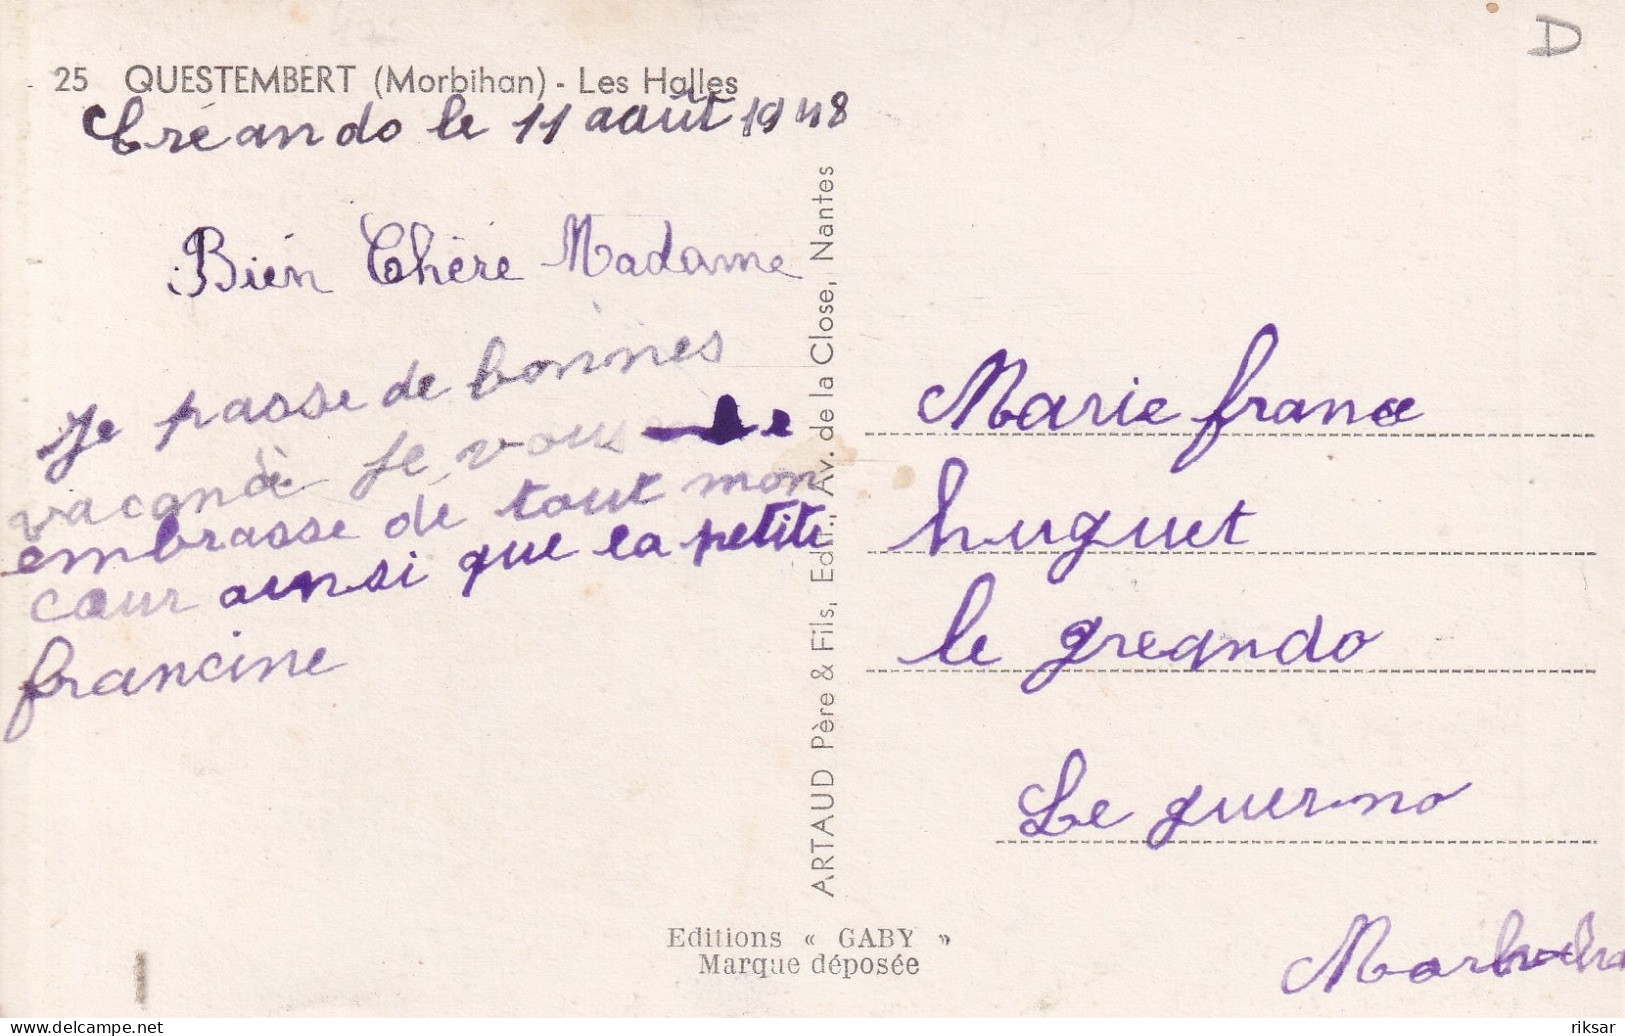 D
25 QUESTEMBERT (Morbihan) - Les Halles
Créando le 11 août 1948
Bien Chère Madame
Je passe de bonnes
vacance Je vous
embrasse de tout mon
cœur ainsi que la petite
francine
ARTAUD Père & Fils, Edit., Av. de la Close, Nantes
Marie france
huguet
le greando
Le guerno
Editions « GABY »
Marque déposée
delcampe.net
riksar